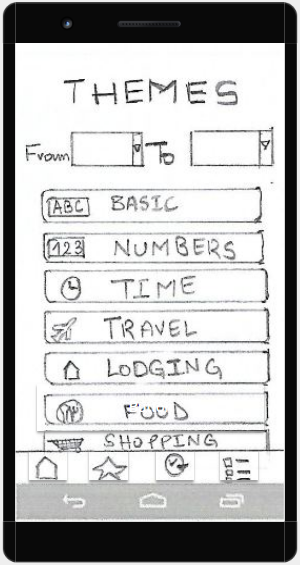 THEMES
From To
ABC BASIC
123 NUMBERS
TIME
TRAVEL
LODGING
FOOD
SHOPPING